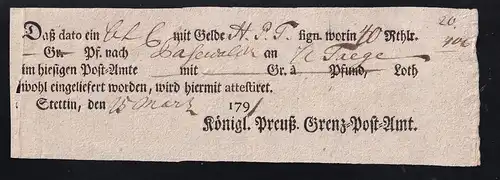 20.
Daß dato ein mit Gelde H. P. T. sign. worin 40 Rthlr.
— Gr. — Pf. nach Pasewalk an
im hiesigen Post-Amte — mit — Gr. à — Pfund, — Loth
wohl eingeliefert worden, wird hiermit attestiret.
Stettin, den 15 Martz 1791
Königl. Preuß. Grenz-Post-Amt.